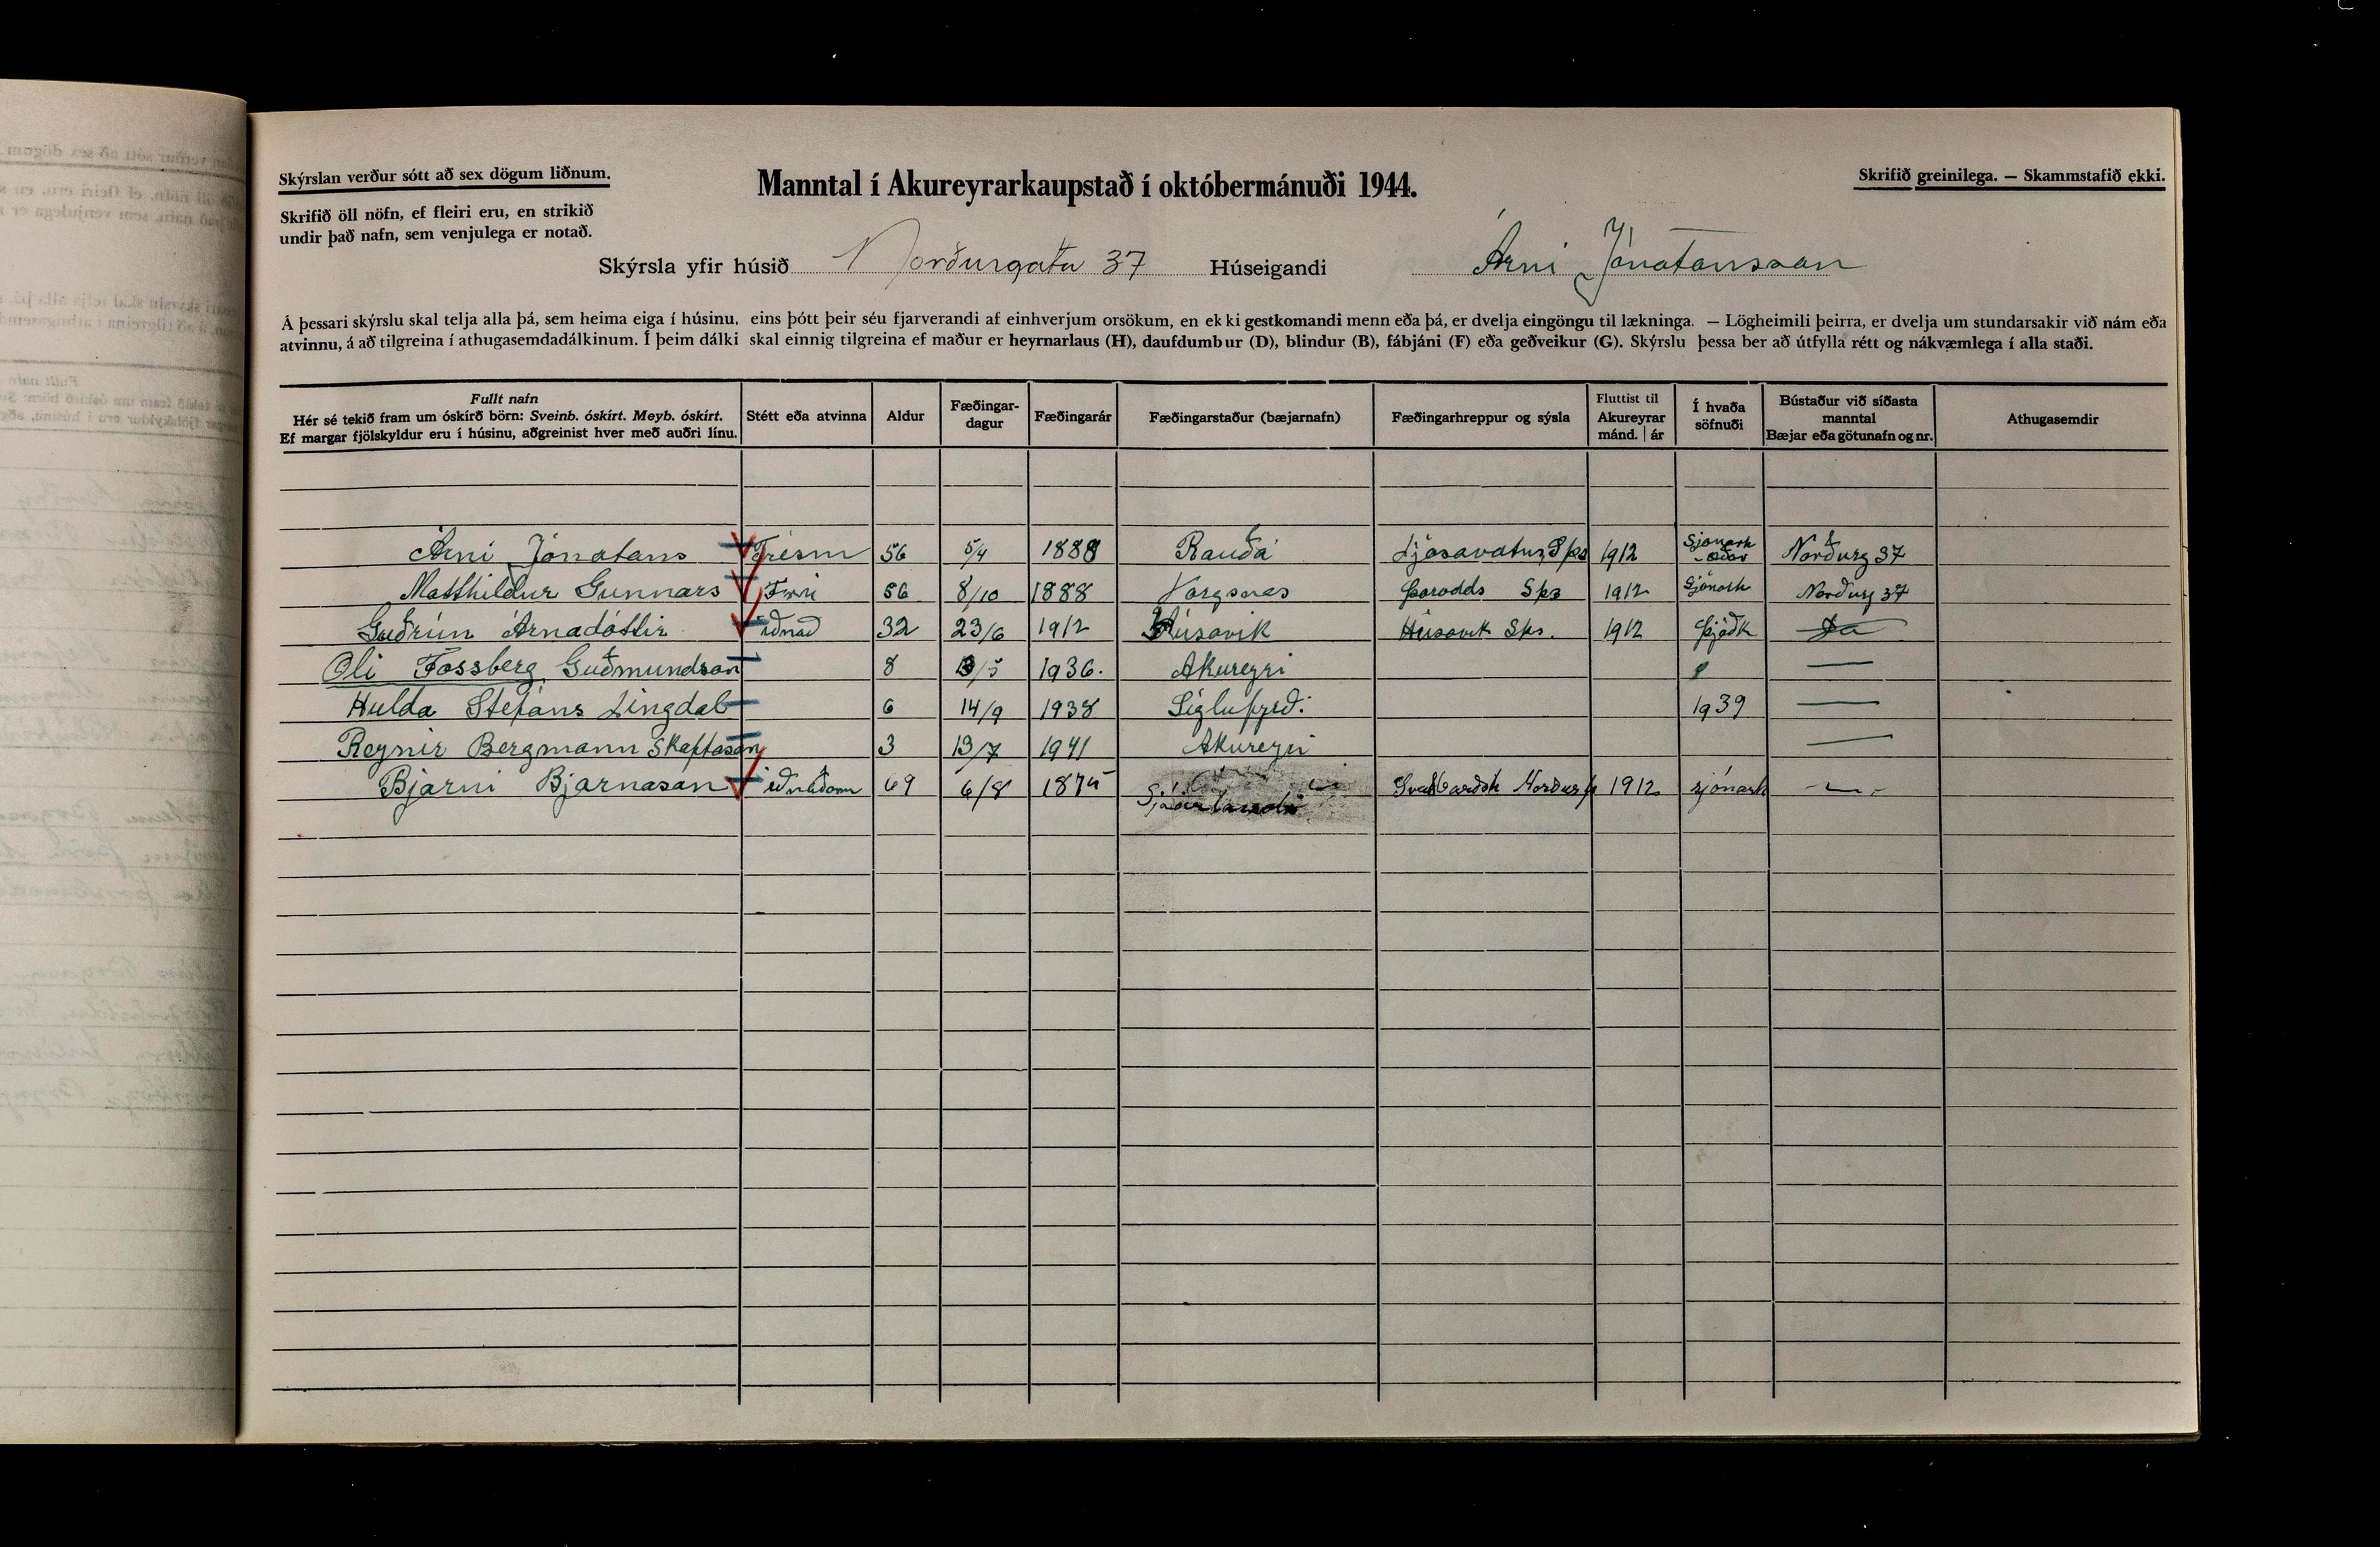 Skýrslan verður sótt að sex dögum liðnum.
Manntal í Akureyrarkaupstað í októbermánuði 1944.
Skrifið greinilega. — Skammstafið ekki.
Skrifið öll nöfn, ef fleiri eru, en strikið
undir það nafn, sem venjulega er notað.
Skýrsla yfir húsið Norðurgata 37 Húseigandi Árni Jónatansson
Á þessari skýrslu skal telja alla þá, sem heima eiga í húsinu, eins þótt þeir séu fjarverandi af einhverjum orsökum, en ekki gestkomandi menn eða þá, er dvelja eingöngu til lækninga. — Lögheimili þeirra, er dvelja um stundarsakir við nám eða
atvinnu, á að tilgreina í athugasemdadálkinum. Í þeim dálki skal einnig tilgreina ef maður er heyrnarlaus (H), daufdumbur (D), blindur (B), fábjáni (F) eða geðveikur (G). Skýrslu þessa ber að útfylla rétt og nákvæmlega í alla staði.
Fullt nafn
Hér sé tekið fram um óskírð börn: Sveinb. óskírt. Meyb. óskírt.
Ef margar fjölskyldur eru í húsinu, aðgreinist hver með auðri línu.
Stétt eða atvinna
Aldur
Fæðingar-
dagur
Fæðingarár
Fæðingarstaður (bæjarnafn)
Fæðingarhreppur og sýsla
Fluttist til
Akureyrar
mánd. | ár
Í hvaða
söfnuði
Bústaður við síðasta
manntal
Bæjar eða götunafn og nr.
Athugasemdir
Árni Jónatans Trésm 56 5/4 1888 Rauðá Ljósavatns Þ 1912 Sjónark Norðurg 37
Matthildur Gunnars Frú 56 8/10 1888 Vargsnes Þorodds 1912 Sjónark Norðurg 37
Guðrún Árnadóttir iðnað 32 23/6 1912 Húsavík Húsavík 1912 Þjóðk
Oli Fossberg Guðmundson 8 /5 1936. Akureyri —
Hulda Stefáns Lingdal 6 14/9 1938 Siglufjrð. 1939 —
Reynir Bergmann Skaptason 3 13/7 1941 Akureyri —
Bjarni Bjarnason 69 6/8 1875 Svalbarðsh Norður 1912 sjónark